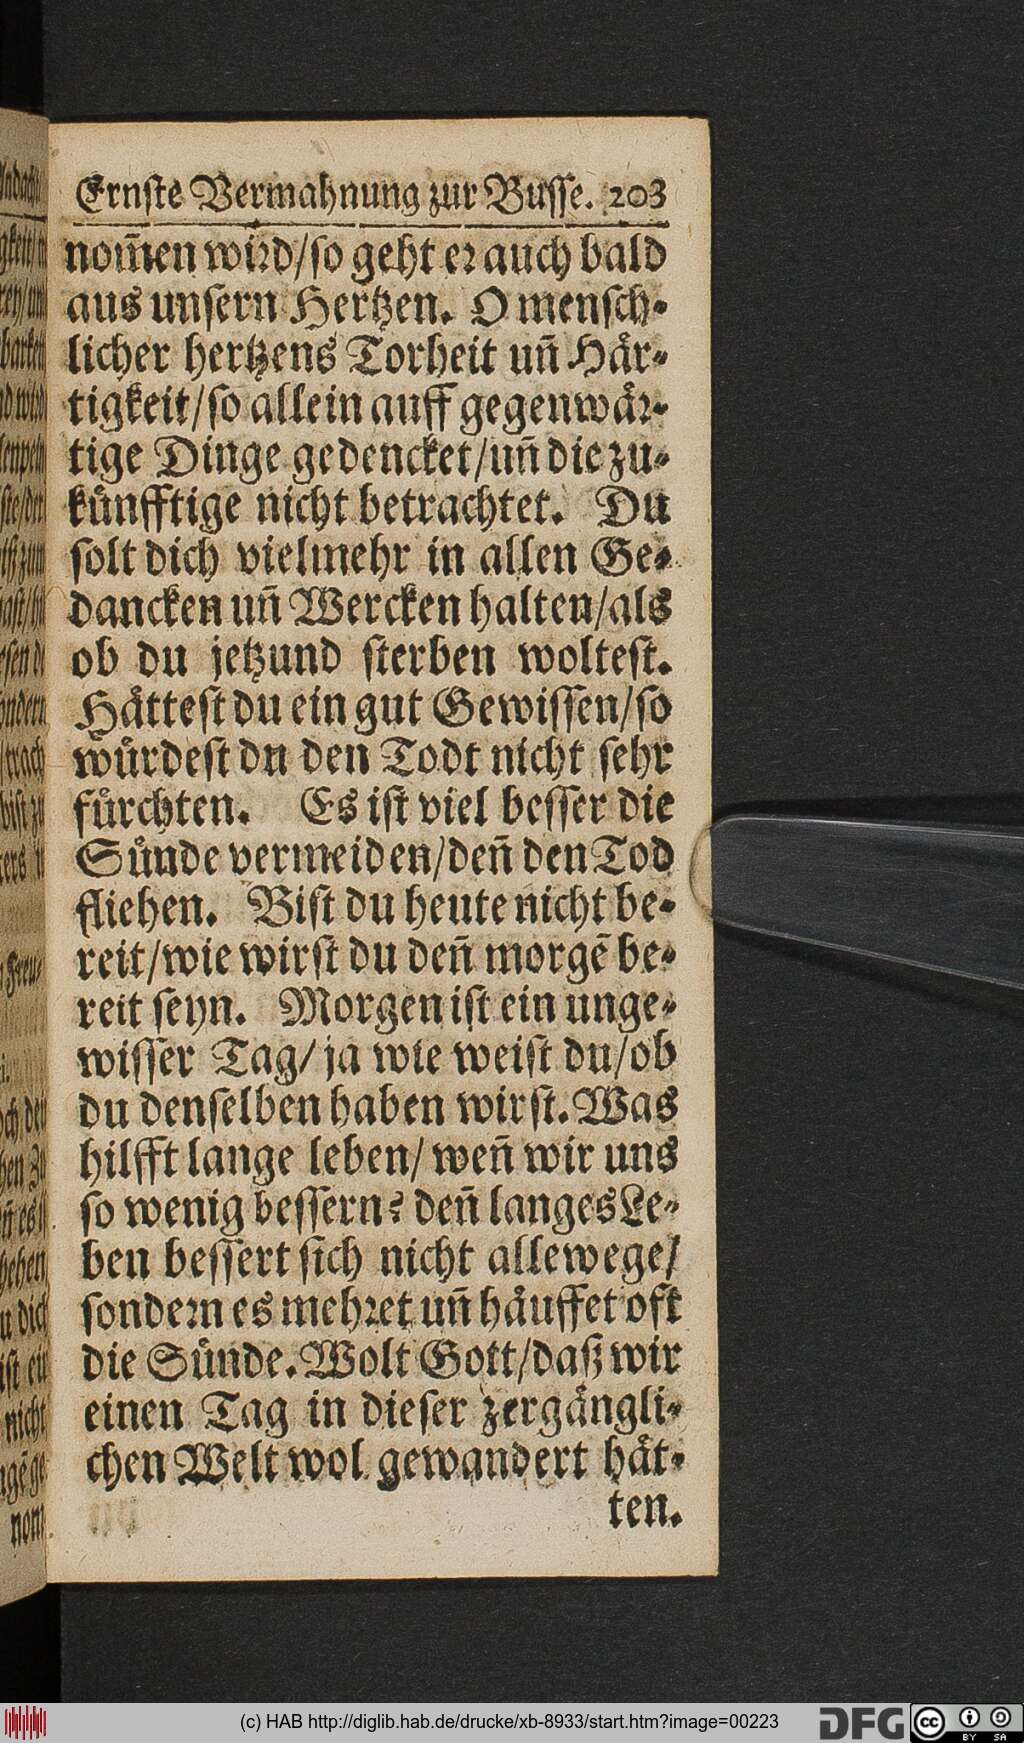 Ernste Vermahnung zur Busse. 203
nom̃en wird/so geht er auch bald
aus unsern Hertzen. O mensch-
licher hertzens Torheit uñ Här-
tigkeit/so allein auff gegenwär-
tige Dinge gedencket/uñ die zu-
künfftige nicht betrachtet. Du
solt dich vielmehr in allen Ge-
dancken uñ Wercken halten/als
ob du jetzund sterben woltest.
Hättest du ein gut Gewissen/so
würdest dn den Todt nicht sehr
fürchten. Es ist viel besser die
Sünde vermeiden/deñ den Tod
fliehen. Bist du heute nicht be-
reit/wie wirst du deñ morgẽ be-
reit seyn. Morgen ist ein unge-
wisser Tag/ja wie weist du/ob
du denselben haben wirst. Was
hilfft lange leben/weñ wir uns
so wenig bessern? deñ langes Le-
ben bessert sich nicht allewege/
sondern es mehret uñ häuffet oft
die Sünde. Wolt Gott/daß wir
einen Tag in dieser zergängli-
chen Welt wol gewandert hät-
ten.
(c) HAB http://diglib.hab.de/drucke/xb-8933/start.htm?image=00223
DFG
cc BY SA